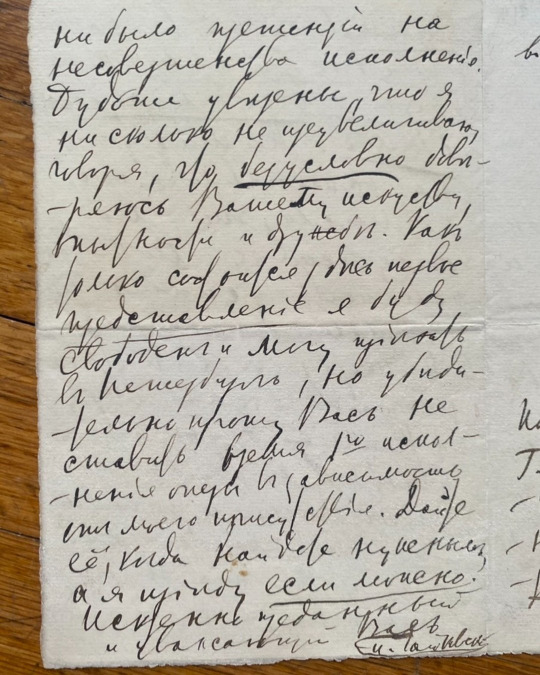 ни было претензій на
несовершенства исполненія.
Будьте увѣрены, что я
нисколько не преувеличиваю,
говоря, что безусловно довѣ-
-ряюсь Вашему искусству,
опытности и дружбѣ. Какъ
только состоится здѣсь первое
представленіе я буду
свободенъ и могу пріѣхать
въ Петербургъ, но убѣди-
-тельно прошу Васъ не
ставить время 1го испол-
-ненія оперы въ зависимость
отъ моего присутствія. Дайте
её, когда найдете нужнымъ,
а я пріѣду если можно.
Искренно преданный
и уважающій Васъ
П. Чайковскій
В